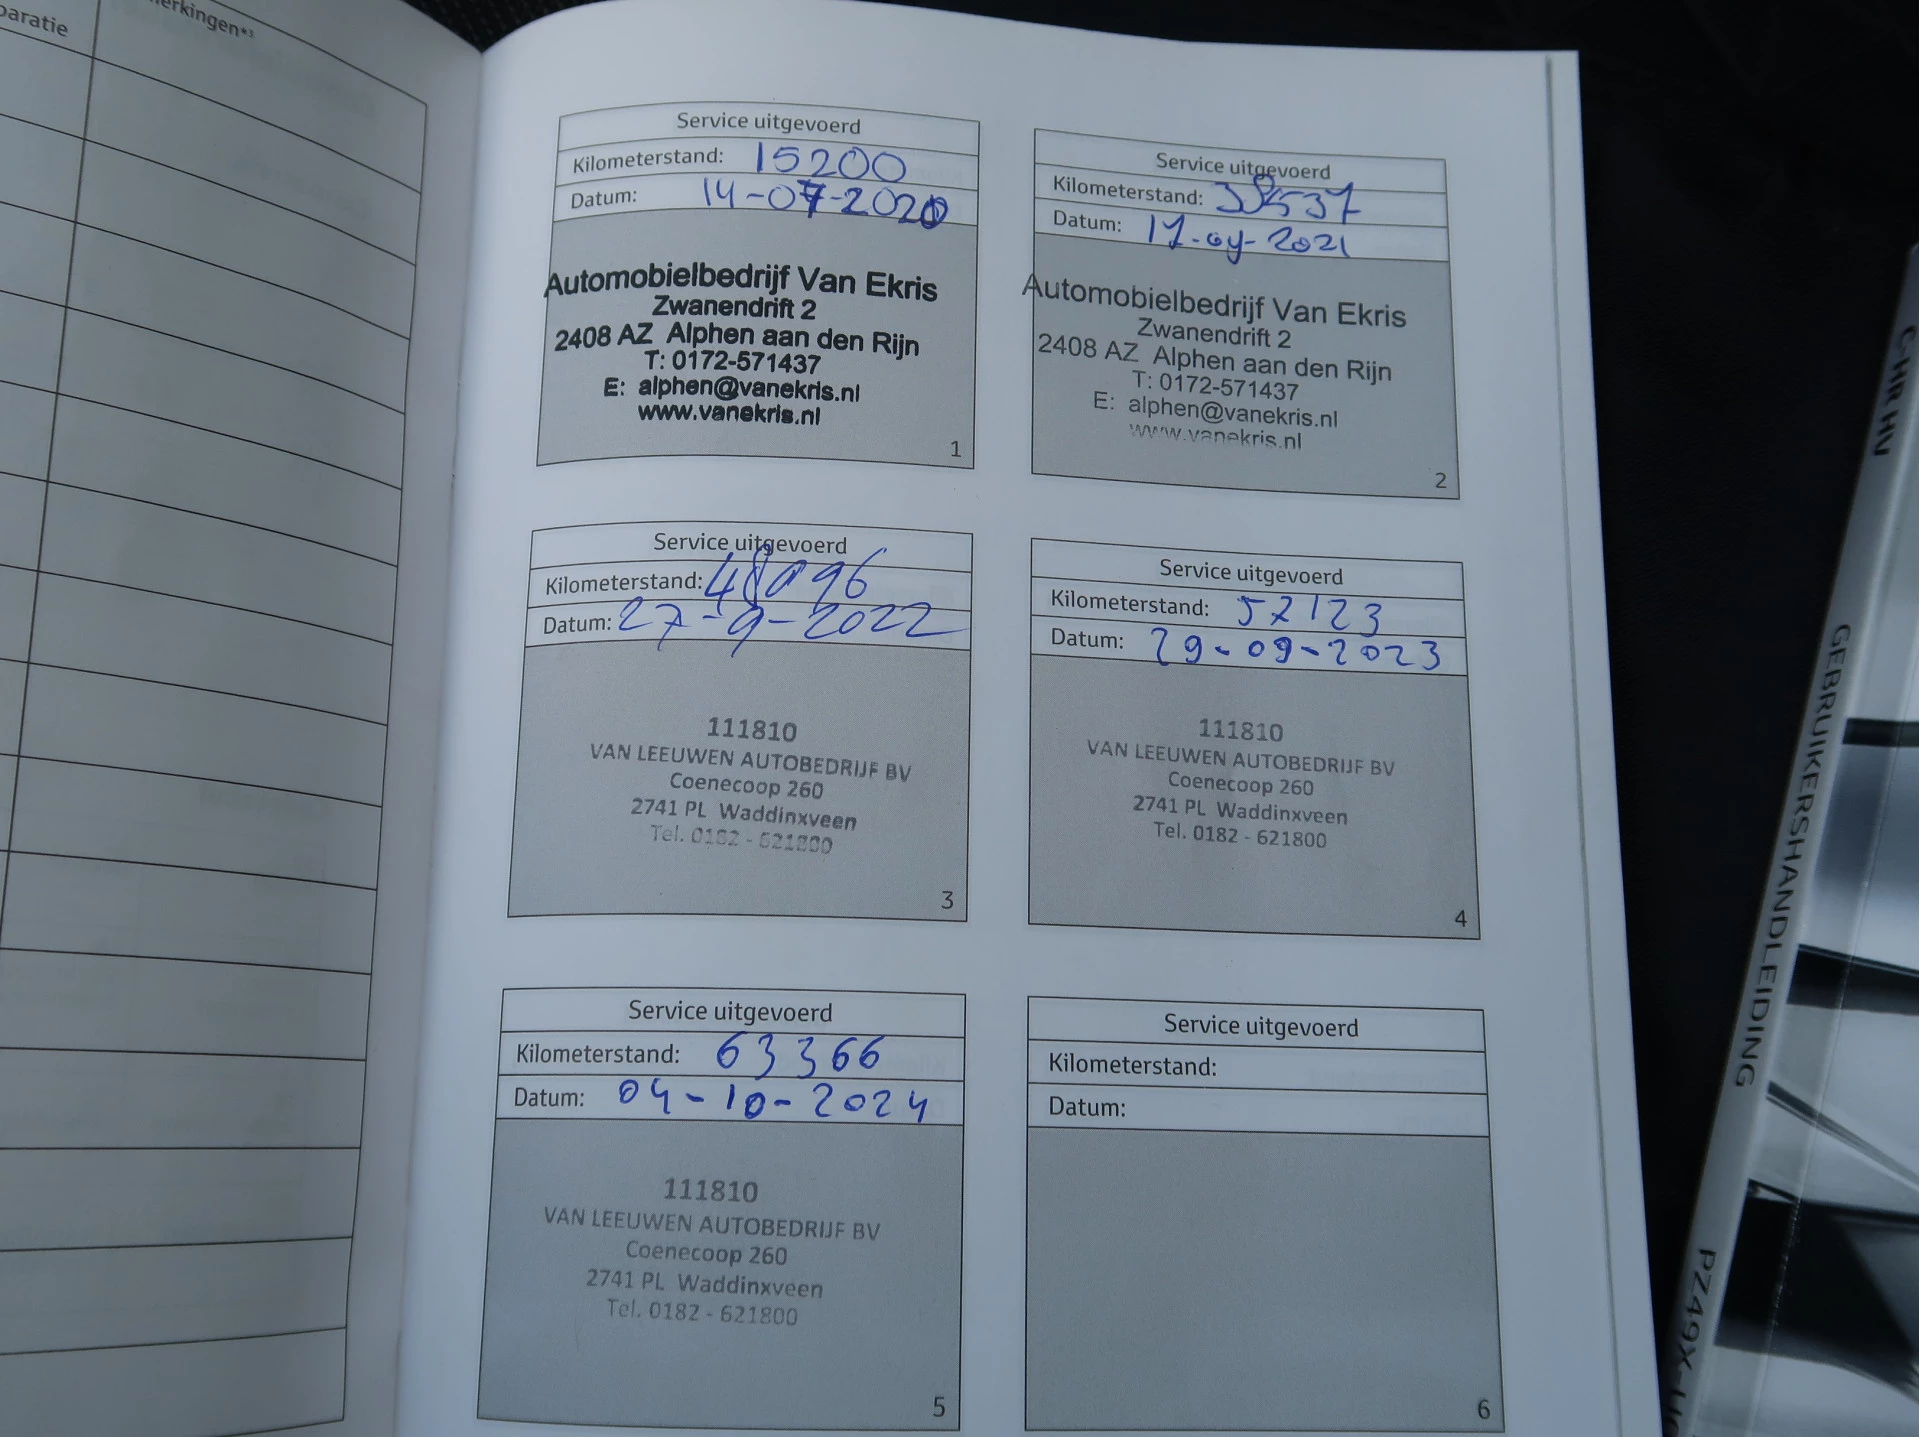 Service uitgevoerd
Kilometerstand: 15200
Datum: 14-07-2020
Automobielbedrijf Van Ekris
Zwanendrift 2
2408 AZ Alphen aan den Rijn
T: 0172-571437
E: alphen@vanekris.nl
www.vanekris.nl
1
Service uitgevoerd
Kilometerstand: 38537
Datum: 17-04-2021
Automobielbedrijf Van Ekris
Zwanendrift 2
2408 AZ Alphen aan den Rijn
T: 0172-571437
E: alphen@vanekris.nl
www.vanekris.nl
2
Service uitgevoerd
Kilometerstand: 48096
Datum: 27-9-2022
111810
VAN LEEUWEN AUTOBEDRIJF BV
Coenecoop 260
2741 PL Waddinxveen
Tel. 0182 - 621800
3
Service uitgevoerd
Kilometerstand: 57123
Datum: 29-09-2023
111810
VAN LEEUWEN AUTOBEDRIJF BV
Coenecoop 260
2741 PL Waddinxveen
Tel. 0182 - 621800
4
Service uitgevoerd
Kilometerstand: 63366
Datum: 04-10-2024
111810
VAN LEEUWEN AUTOBEDRIJF BV
Coenecoop 260
2741 PL Waddinxveen
Tel. 0182 - 621800
5
Service uitgevoerd
Kilometerstand:
Datum:
6
C-HR HV
GEBRUIKERSHANDLEIDING